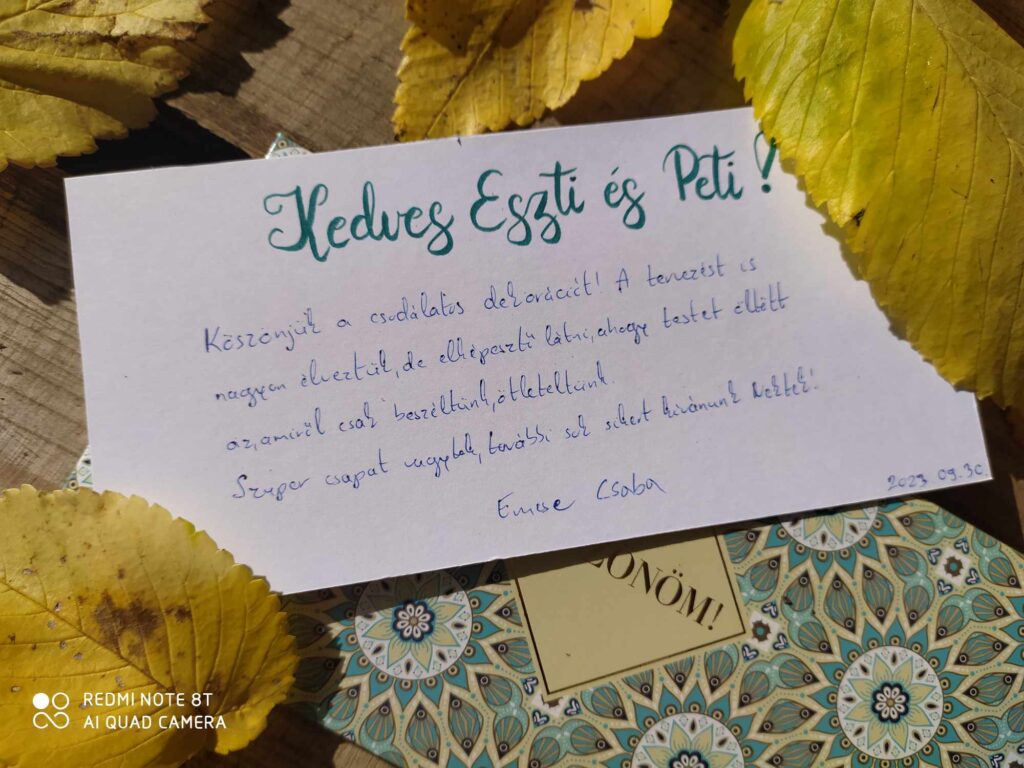 Kedves Eszti és Peti!
Köszönjük a csodálatos dekorációt! A tervezést is
nagyon élveztük, de elképesztő látni, ahogy testet öltött
az, amiről csak beszéltünk, ötleteltünk.
Szuper csapat vagytok, további sok sikert kívánunk Nektek!
Emese Csaba
2023.09.30.
ZÖNÖM!
REDMI NOTE 8T
AI QUAD CAMERA